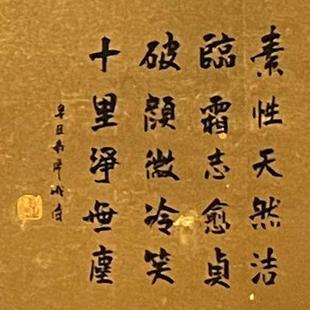 素性天然洁
臨霜志愈貞
破顔微冷笑
十里淨無塵
辛丑